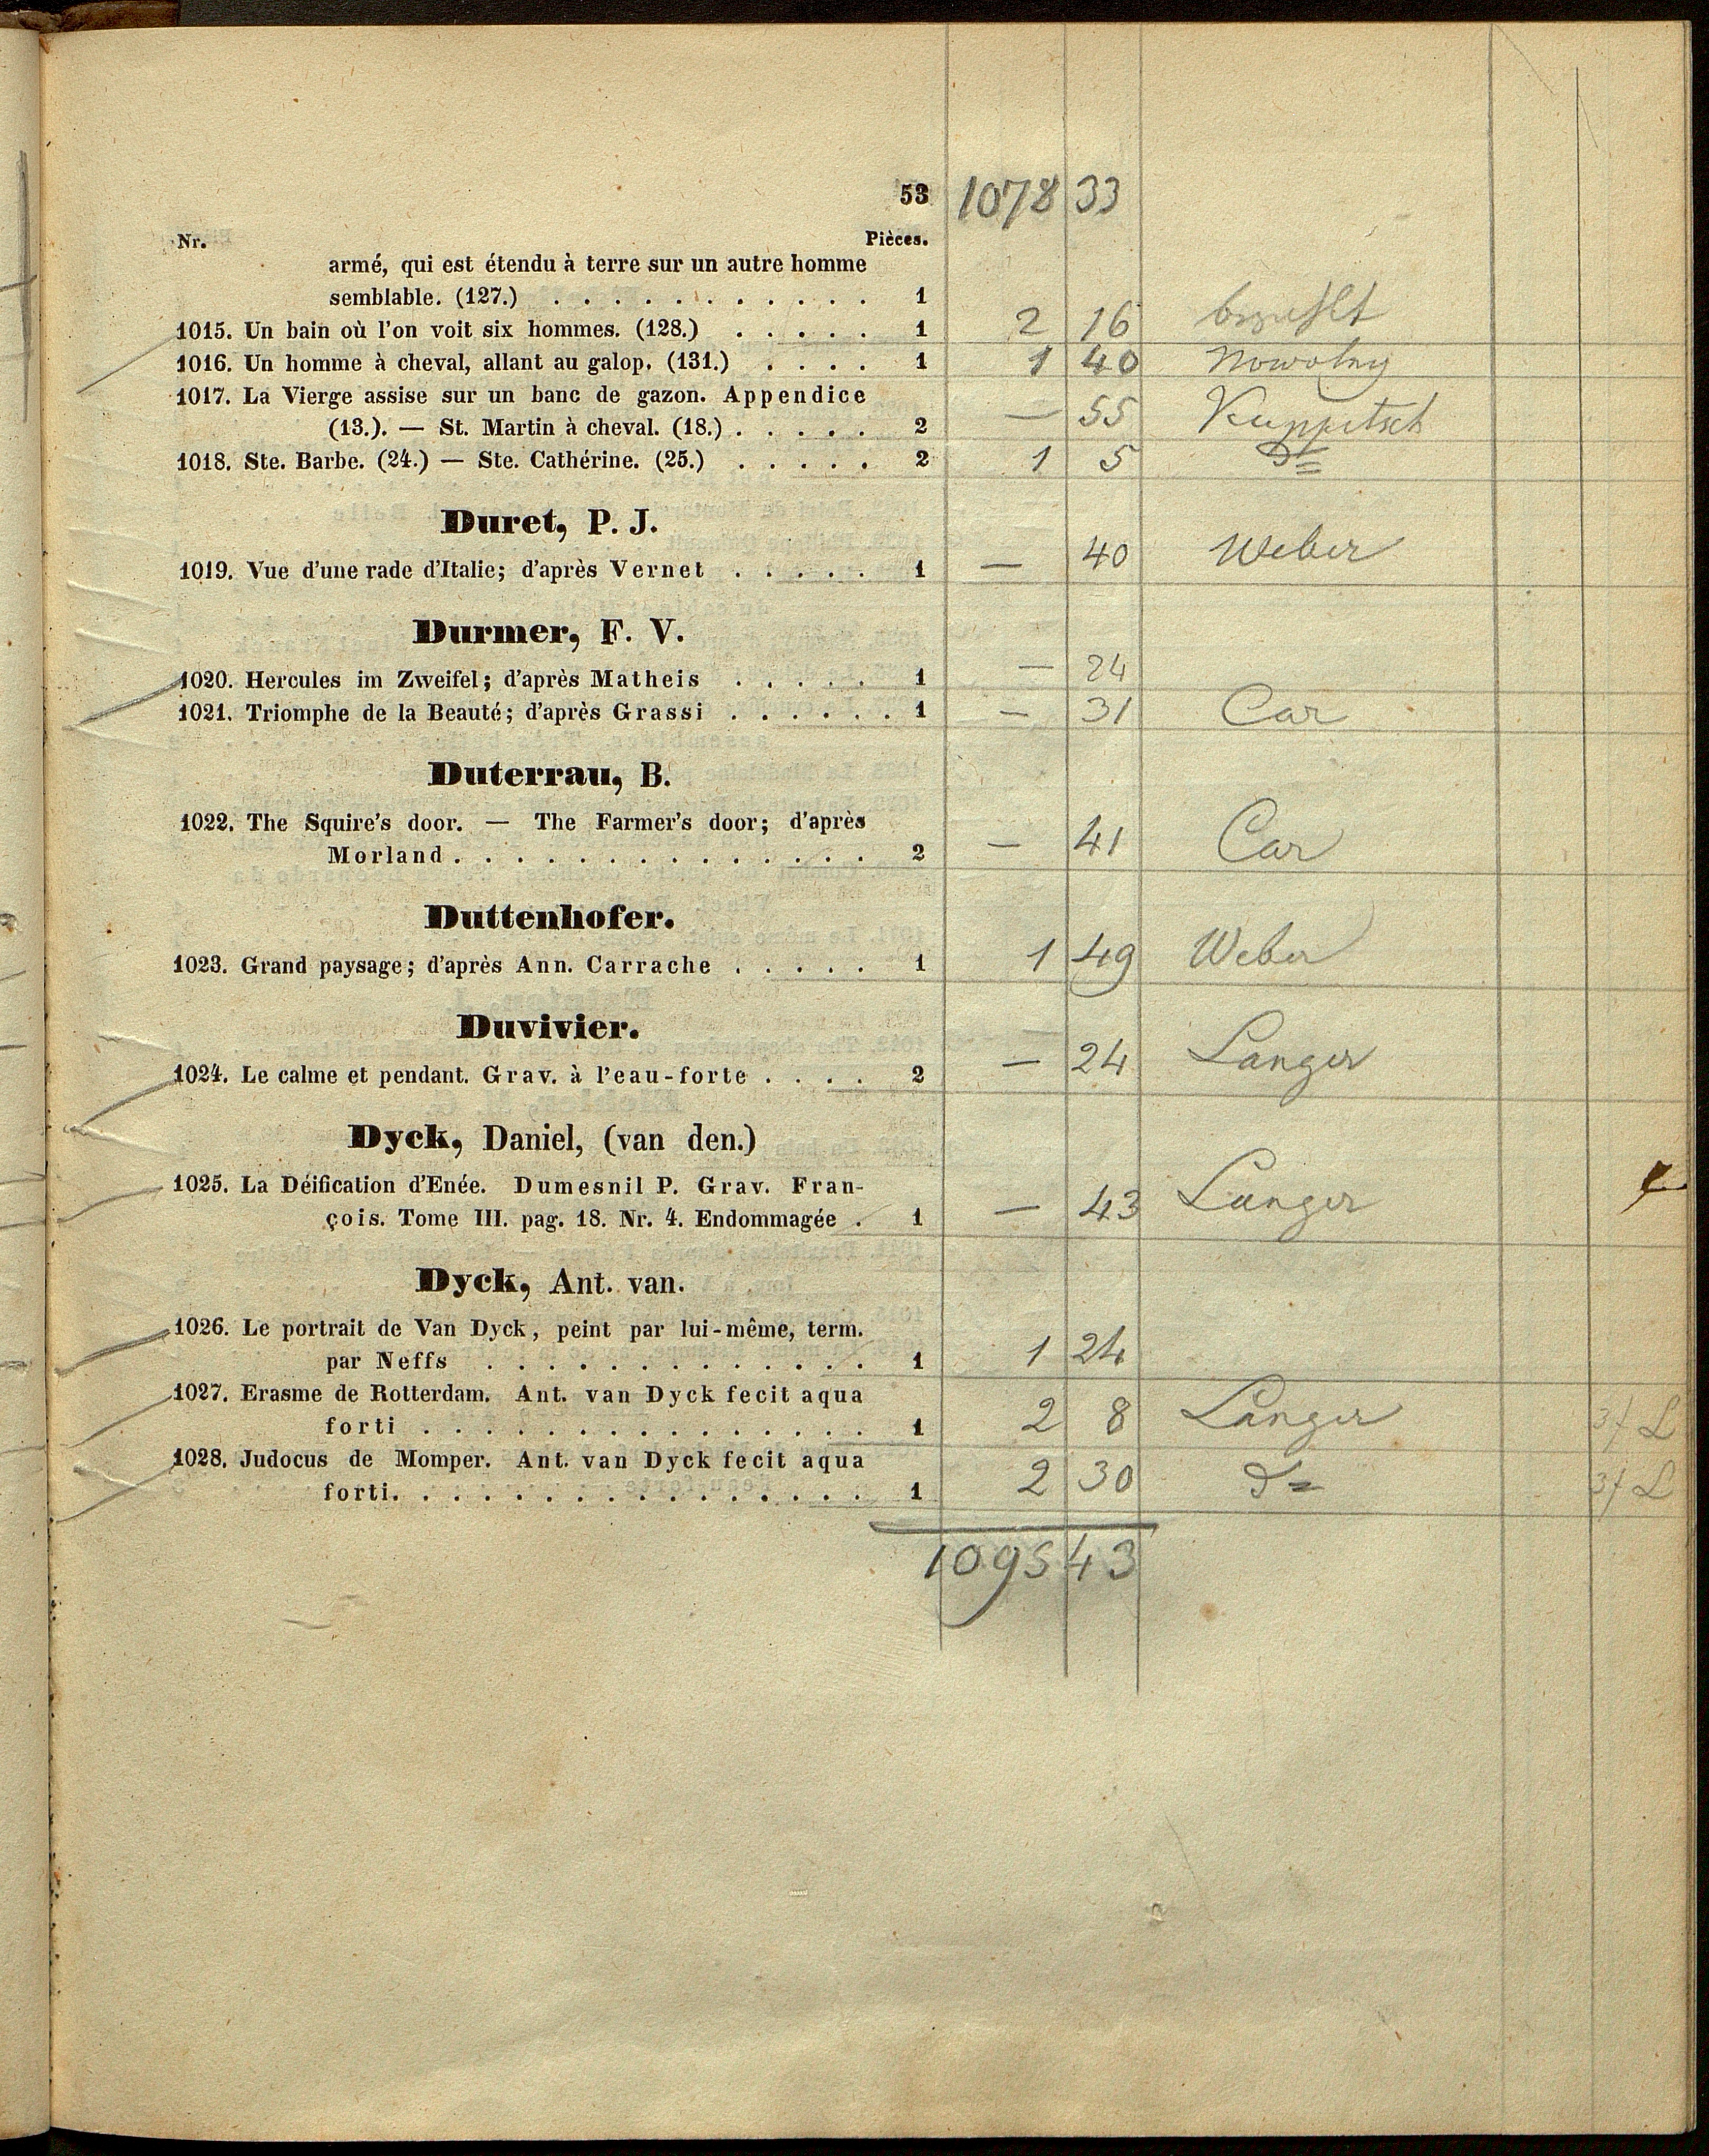 53 1078 33
Nr. Pièces.
armé, qui est étendu à terre sur un autre homme
semblable. (127.) . . . . . . . . . . . 1
1015. Un bain où l'on voit six hommes. (128.) . . . . . 1 2 16 bezahlt
1016. Un homme à cheval, allant au galop. (131.) . . . . 1 1 40 Nowotny
1017. La Vierge assise sur un banc de gazon. Appendice
(13.). — St. Martin à cheval. (18.) . . . . . 2 — 55 Kuppitsch
1018. Ste. Barbe. (24.) — Ste. Cathérine. (25.) . . . . . 2 1 5 do
Duret, P. J.
1019. Vue d'une rade d'Italie; d'après Vernet . . . . . 1 — 40 Weber
Durmer, F. V.
1020. Hercules im Zweifel; d'après Matheis . . . . . 1 — 24
1021. Triomphe de la Beauté; d'après Grassi . . . . . . 1 — 31 Car
Duterrau, B.
1022. The Squire's door. — The Farmer's door; d'après
Morland . . . . . . . . . . . . . . 2 — 41 Car
Duttenhofer.
1023. Grand paysage; d'après Ann. Carrache . . . . . 1 1 49 Weber
Duvivier.
1024. Le calme et pendant. Grav. à l'eau-forte . . . . 2 — 24 Langer
Dyck, Daniel, (van den.)
1025. La Déification d'Enée. Dumesnil P. Grav. Fran-
çois. Tome III. pag. 18. Nr. 4. Endommagée . 1 — 43 Langer
Dyck, Ant. van.
1026. Le portrait de Van Dyck, peint par lui-même, term.
par Neffs . . . . . . . . . . . . . 1 1 24
1027. Erasme de Rotterdam. Ant. van Dyck fecit aqua
forti . . . . . . . . . . . . . . . 1 2 8 Langer 3f L
1028. Judocus de Momper. Ant. van Dyck fecit aqua
forti. . . . . . . . . . . . . . . . 1 2 30 do 3f L
1095 43